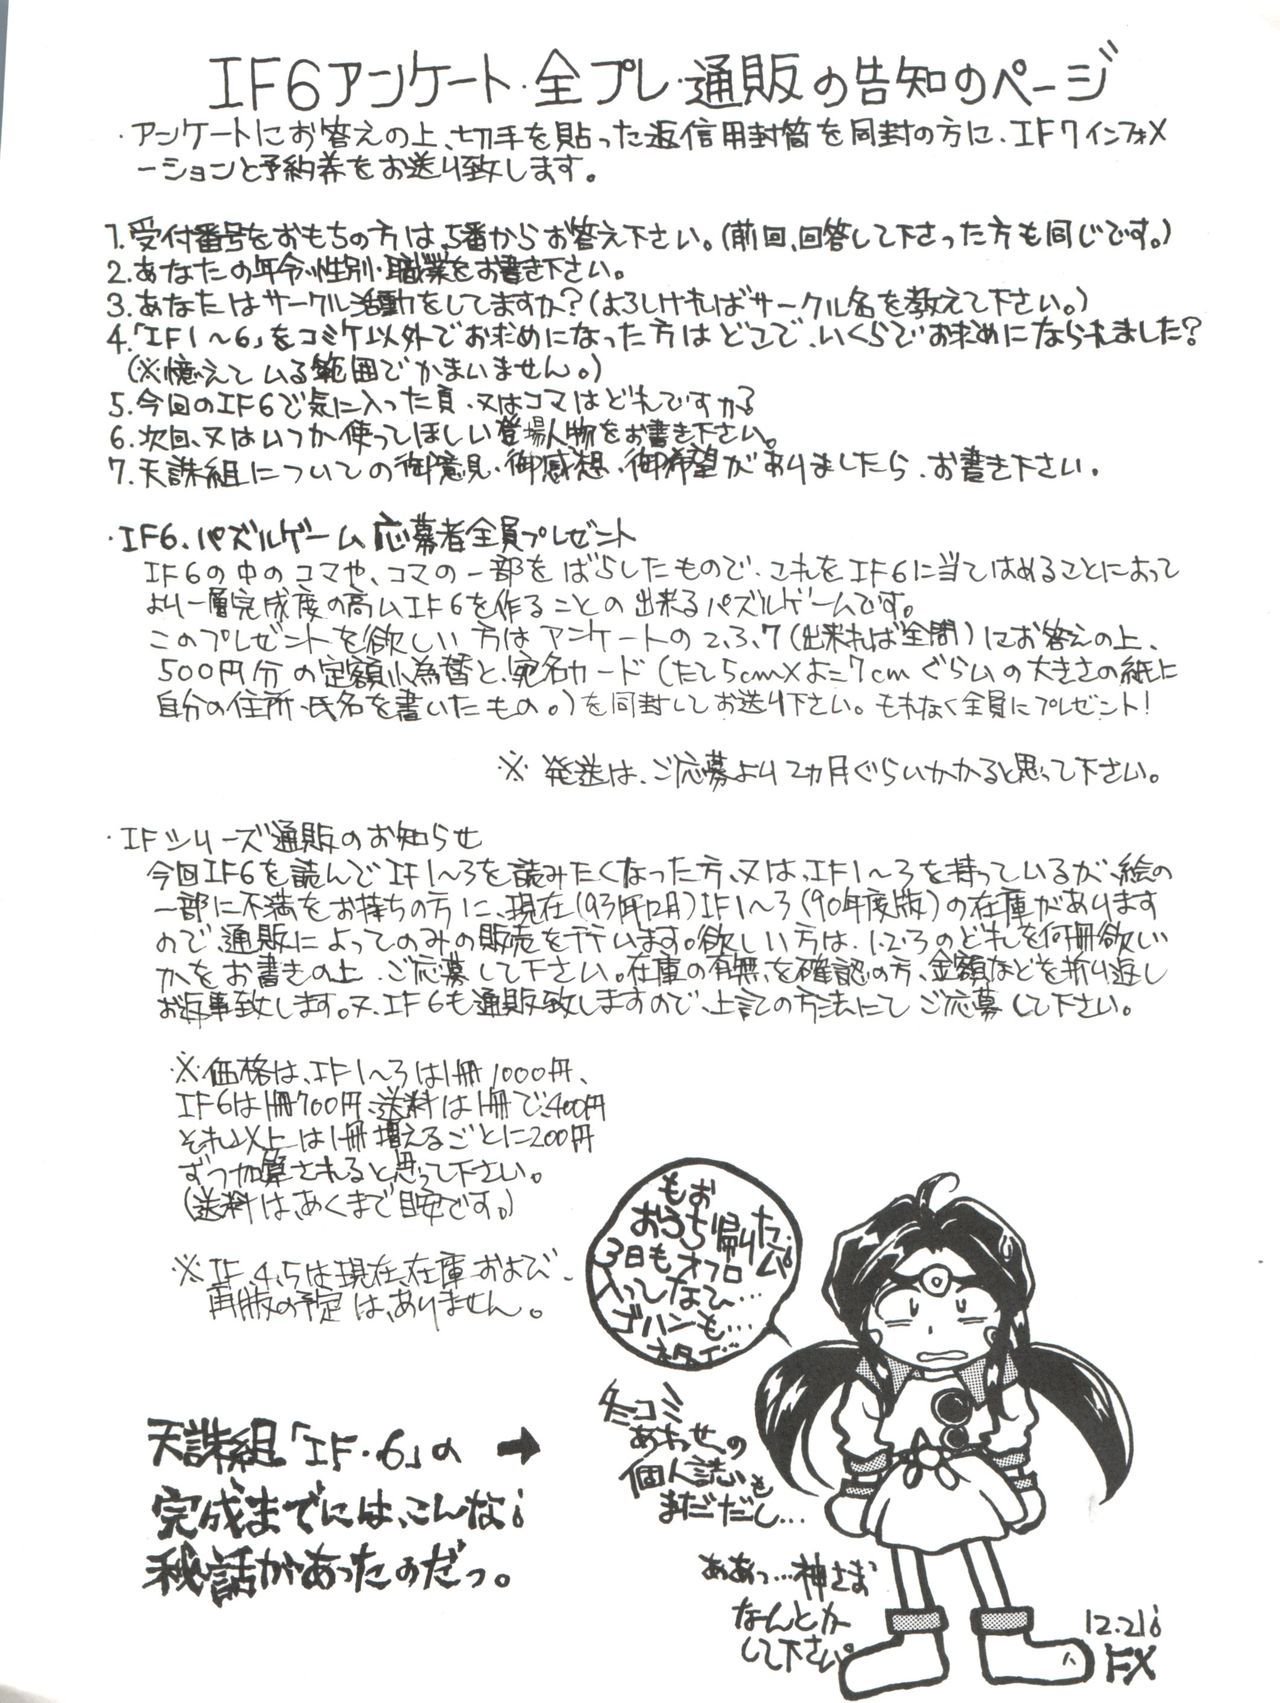 IF6アンケート・全プレ・通販の告知のページ
・アンケートにお答えの上、切手を貼った返信用封筒を同封の方に、IF7インフォメ
ーションと予約券をお送り致します。
1.受付番号をおもちの方は、5番からお答え下さい。(前回、回答して下さった方も同じです。)
2.あなたの年令・性別・職業をお書き下さい。
3.あなたはサークル活動をしてますか?(よろしければサークル名を教えて下さい。)
4.「IF1～6」をコミケ以外でお求めになった方はどこで、いくらでお求めになられました?
(※憶えている範囲でかまいません。)
5.今回のIF6で気に入った頁、又はコマはどれですか?
6.次回、又はいつか使ってほしい登場人物をお書き下さい。
7.天誅組についての御意見・御感想・御希望がありましたら、お書き下さい。
・IF6、パズルゲーム応募者全員プレゼント
IF6の中のコマや、コマの一部をばらしたもので、これをIF6に当てはめることによって
より一層完成度の高いIF6を作ることの出来るパズルゲームです。
このプレゼントを欲しい方はアンケートの2、3、7(出来れば全問)にお答えの上、
500円分の定額小為替と、宛名カード(たて5cm×よこ7cmぐらいの大きさの紙に
自分の住所、氏名を書いたもの。)を同封してお送り下さい。もれなく全員にプレゼント!
※発送は、ご応募より2カ月ぐらいかかると思って下さい。
・IFシリーズ通販のお知らせ
今回IF6を読んでIF1～3を読みたくなった方、又は、IF1～3を持っているが、絵の
一部に不満をお持ちの方に、現在(93年12月)IF1～3(90年度版)の在庫があります
ので、通販によってのみの販売を行います。欲しい方は、1・2・3のどれを何冊欲しい
かをお書きの上、ご応募して下さい。在庫の有無を確認の方、金額などを折り返し
お返事致します。又、IF6も通販致しますので、上記の方法にてご応募して下さい。
※価格は、IF1～3は1冊1000円、
IF6は1冊700円、送料は1冊で、400円
それ以上は1冊増えるごとに200円
ずつ加算されると思って下さい。
(送料は、あくまで目安です。)
※IF、4、5は現在、在庫および、
再版の予定は、ありません。
もお
おうち帰りたい
3日もオフロ
入ってないひ…
ゴハンも…
ネタイ…
冬コミ
あわせの
個人誌も
まだだし…
ああっ…神さま
なんとか
して下さい。
天誅組「IF・6」の →
完成までには、こんな
秘話があったのだっ。
12.21
FX